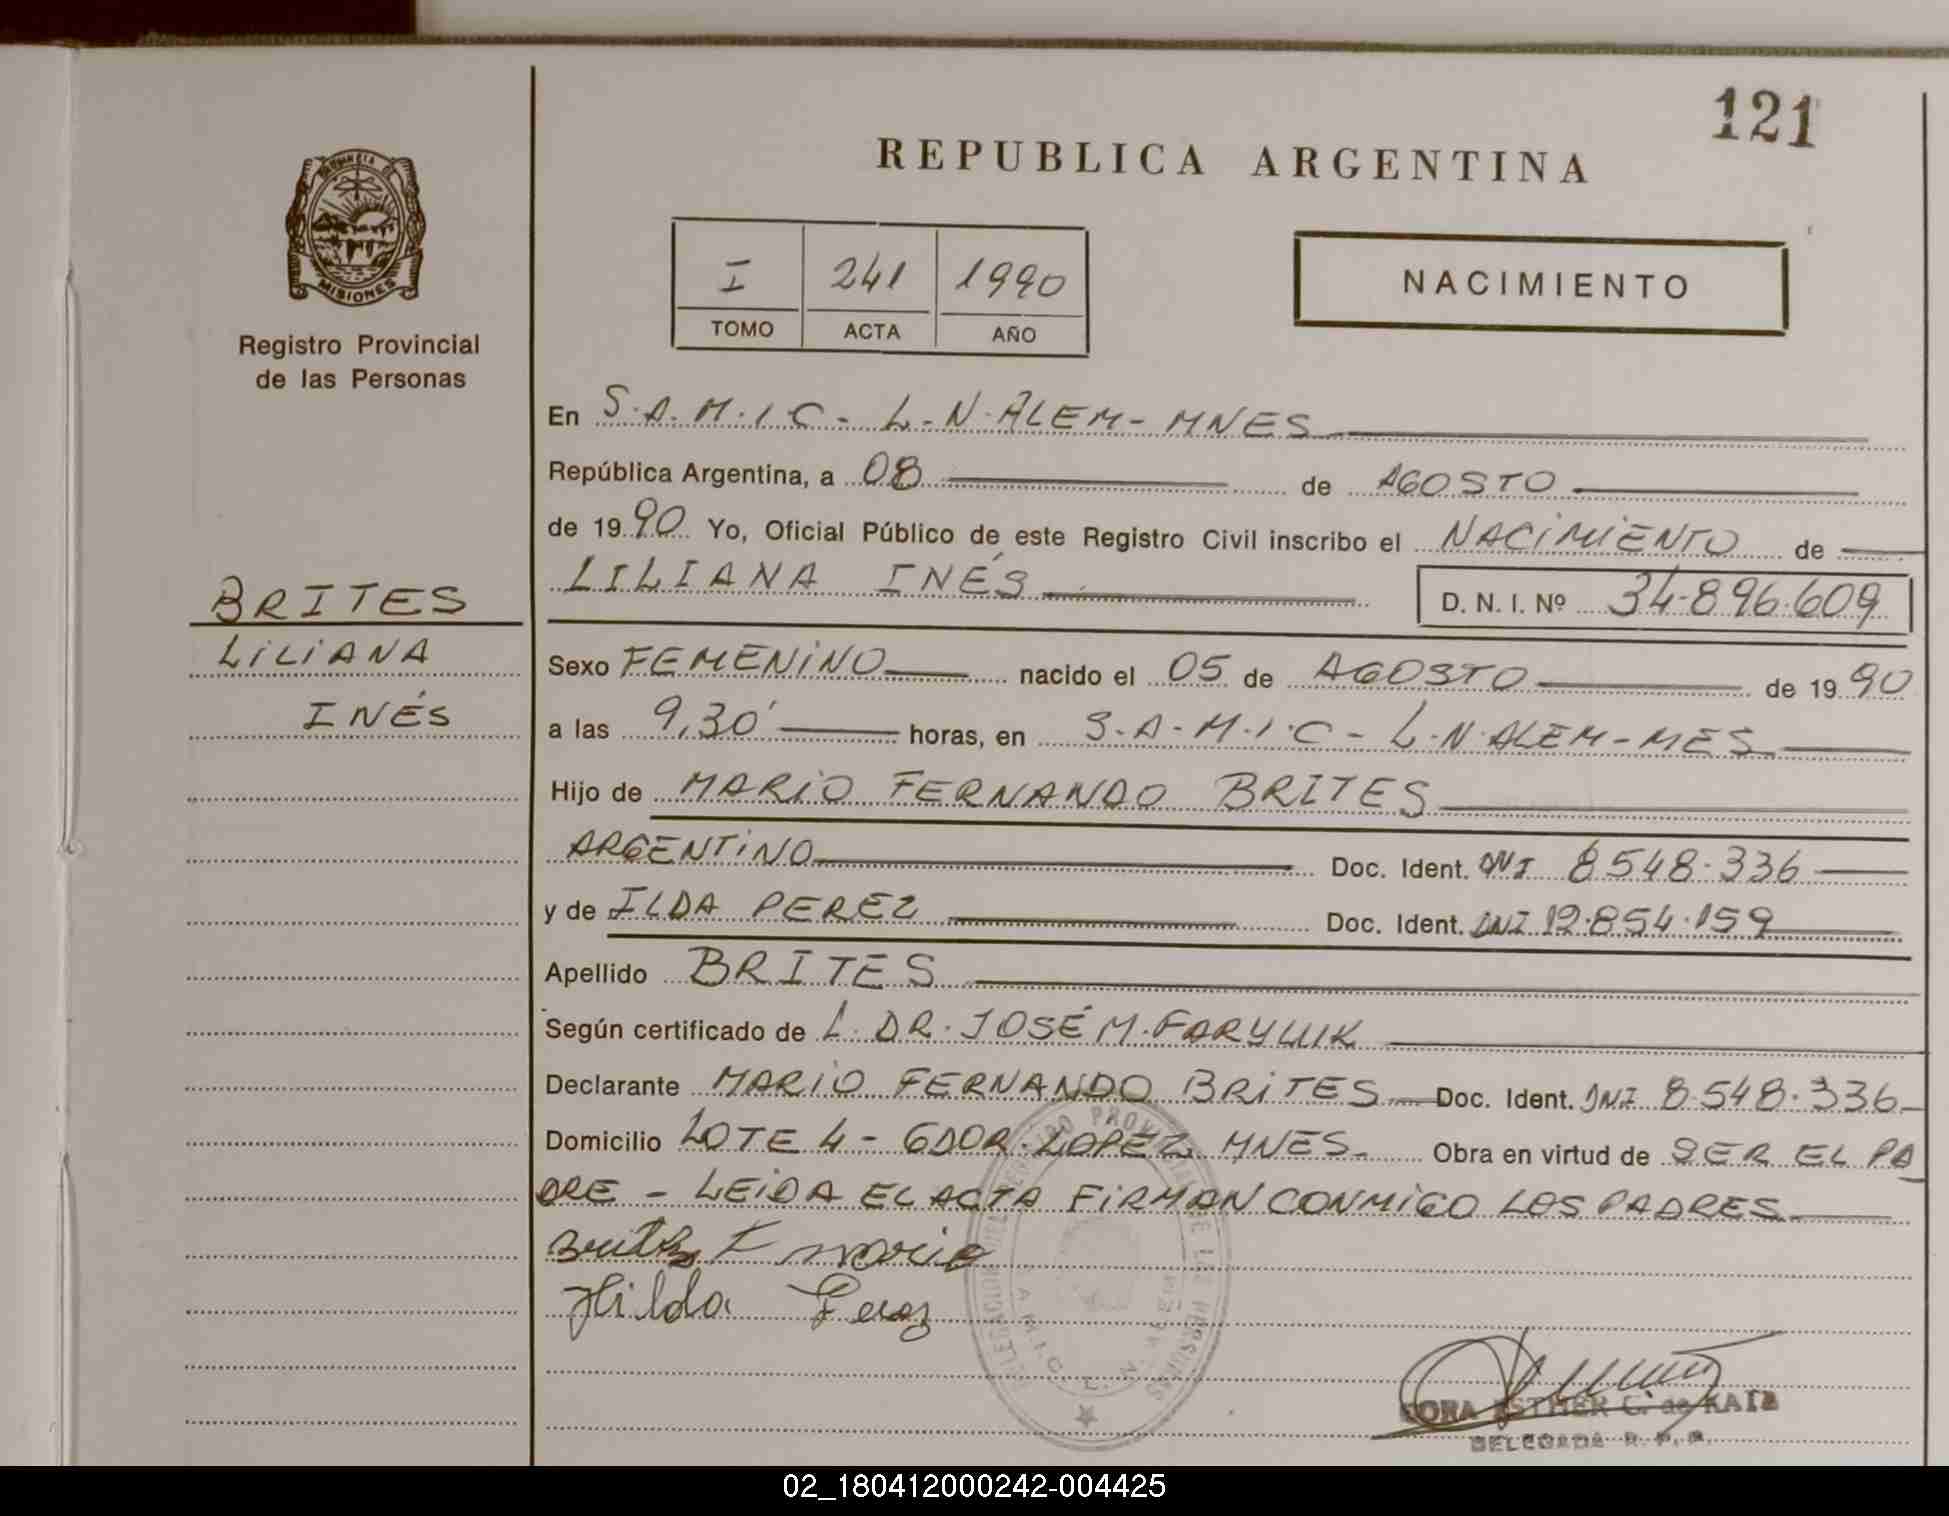 121
REPUBLICA ARGENTINA
PROVINCIA
MISIONES
Registro Provincial
de las Personas
I 241 1990
TOMO ACTA AÑO
NACIMIENTO
En S.A.M.I.C - L.N.ALEM - MNES
República Argentina, a 08 de AGOSTO
de 1990 Yo, Oficial Público de este Registro Civil inscribo el NACIMIENTO de
LILIANA INÉS D. N. I. Nº 34.896.609
BRITES
LILIANA
INÉS
Sexo FEMENINO nacido el 05 de AGOSTO de 1990
a las 9,30' horas, en S.A.M.I.C - L.N.ALEM - MES
Hijo de MARIO FERNANDO BRITES
ARGENTINO Doc. Ident. DNI 8548.336
y de ILDA PEREZ Doc. Ident. DNI 12.854.159
Apellido BRITES
Según certificado de L. DR. JOSÉ M. FARYLUK
Declarante MARIO FERNANDO BRITES Doc. Ident. DNI 8.548.336
Domicilio LOTE 4 - GDOR. LOPEZ MNES. Obra en virtud de SER EL PA
DRE - LEIDA EL ACTA FIRMAN CONMIGO LOS PADRES
Brites F Mario
Hilda Perez
ESTHER C. de KATZ
DELEGADA R. P. P.
02_180412000242-004425